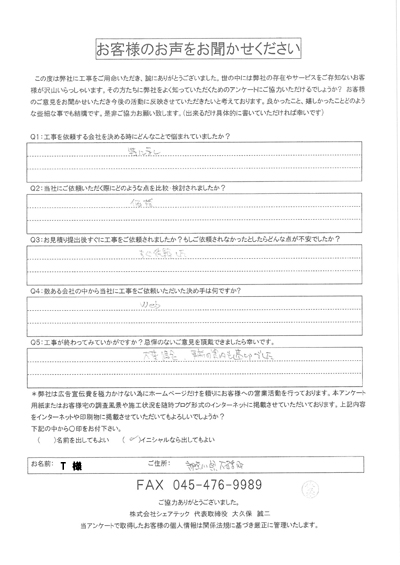 お客様のお声をお聞かせください
この度は弊社に工事をご用命いただき、誠にありがとうございました。世の中には弊社の存在やサービスをご存知ないお客
様が沢山いらっしゃいます。その方たちに弊社をよく知っていただくためのアンケートにご協力いただけるでしょうか? お客様
のご意見をお聞かせいただき今後の活動に反映させていただきたいと考えております。良かったこと、嬉しかったことどのよう
な些細な事でも結構です。是非ご協力お願い致します。(出来るだけ具体的に書いていただければ幸いです)
Q1:工事を依頼する会社を決める時にどんなことで悩まれていましたか?
特になし
Q2:当社にご依頼いただく際にどのような点を比較・検討されましたか?
価格
Q3:お見積り提出後すぐに工事をご依頼されましたか?もしご依頼されなかったとしたらどんな点が不安でしたか?
Q4:数ある会社の中から当社に工事をご依頼いただいた決め手は何ですか?
Q5:工事が終わってみていかがですか?忌憚のないご意見を頂戴できましたら幸いです。
*弊社は広告宣伝費を極力かけない為にホームページだけを頼りにお客様への営業活動を行っております。本アンケート
用紙またはお客様宅の調査風景や施工状況を随時ブログ形式のインターネットに掲載させていただいております。上記内容
をインターネットや印刷物に掲載させていただいてもよろしいでしょうか?
下記の中から〇印をお付け下さい。
( )名前を出してもよい ( )イニシャルなら出してもよい
お名前: T 様 ご住所:
FAX 045-476-9989
ご協力ありがとうございました。
株式会社シェアテック 代表取締役 大久保 誠二
当アンケートで取得したお客様の個人情報は関係法規に基づき厳正に管理いたします。